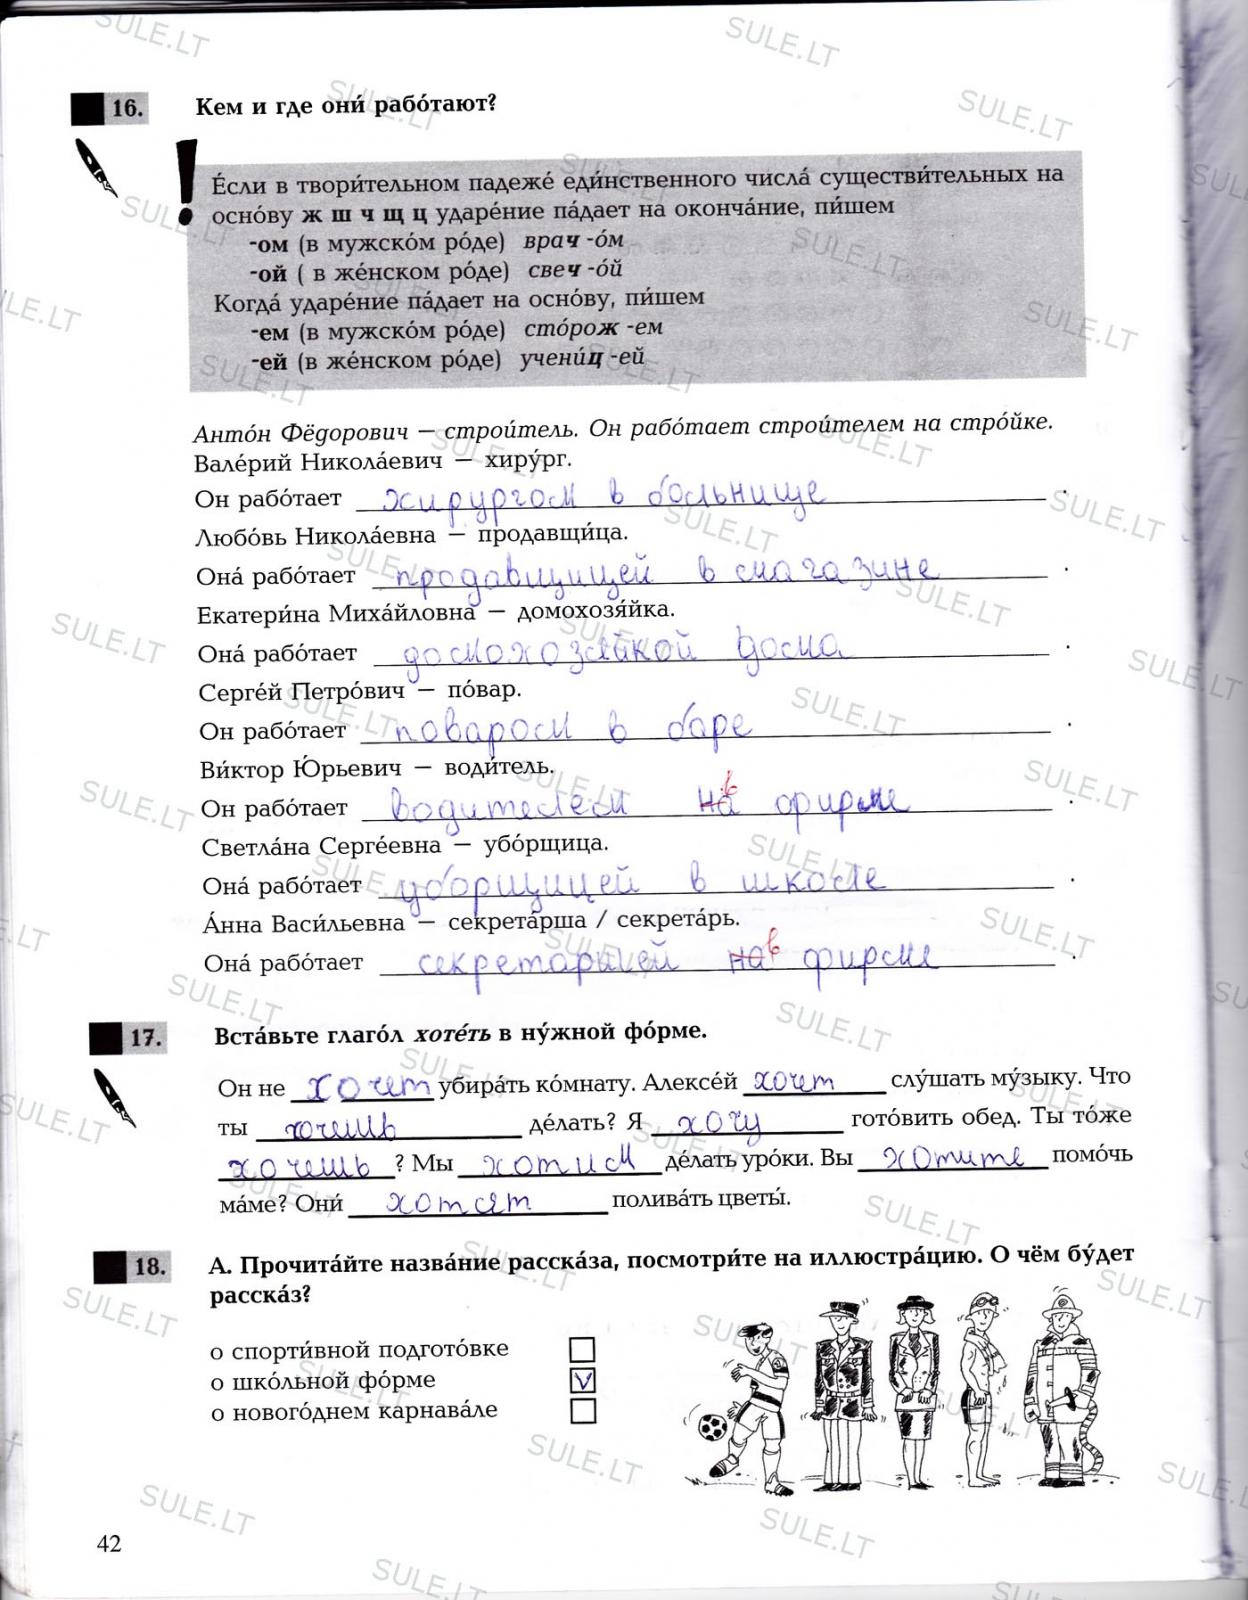 16. Кем и где они́ рабо́тают?
!
Е́сли в твори́тельном падеже́ еди́нственного числа́ существи́тельных на
осно́ву ж ш ч щ ц ударе́ние па́дает на оконча́ние, пи́шем
-ом (в мужско́м ро́де) врач -о́м
-ой ( в же́нском ро́де) свеч -о́й
Когда́ ударе́ние па́дает на осно́ву, пи́шем
-ем (в мужско́м ро́де) сто́рож -ем
-ей (в же́нском ро́де) учени́ц -ей
Анто́н Фёдорович — строи́тель. Он рабо́тает строи́телем на стро́йке.
Вале́рий Никола́евич — хиру́рг.
Он рабо́тает хирургом в больнице.
Любо́вь Никола́евна — продавщи́ца.
Она́ рабо́тает продавщицей в магазине.
Екатери́на Миха́йловна — домохозя́йка.
Она́ рабо́тает домохозяйкой дома.
Серге́й Петро́вич — по́вар.
Он рабо́тает поваром в баре.
Ви́ктор Ю́рьевич — води́тель.
Он рабо́тает водителем на в фирме.
Светла́на Серге́евна — убо́рщица.
Она́ рабо́тает уборщицей в школе.
А́нна Васи́льевна — секрета́рша / секрета́рь.
Она́ рабо́тает секретаршей на в фирме.
17. Вста́вьте глаго́л хоте́ть в ну́жной фо́рме.
Он не хочет убира́ть ко́мнату. Алексе́й хочет слу́шать му́зыку. Что
ты хочешь де́лать? Я хочу гото́вить обед. Ты то́же
хочешь ? Мы хотим де́лать уро́ки. Вы хотите помо́чь
ма́ме? Они́ хотят полива́ть цветы́.
18. А. Прочита́йте назва́ние расска́за, посмотри́те на иллюстра́цию. О чём бу́дет
расска́з?
о спорти́вной подгото́вке
о шко́льной фо́рме V
о нового́днем карнава́ле
42
SULE.LT